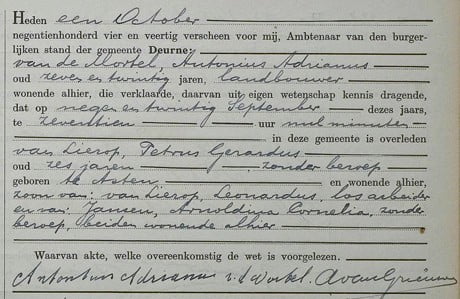 Heden een October
negentienhonderd vier en veertig verscheen voor mij, Ambtenaar van den burger-
lijken stand der gemeente Deurne:
van de Mortel, Antonius Adrianus
oud zeven en twintig jaren, landbouwer
wonende alhier, die verklaarde, daarvan uit eigen wetenschap kennis dragende,
dat op negen en twintig September dezes jaars,
te zeventien uur nul minuten
in deze gemeente is overleden
van Lierop, Petrus Gerardus
oud zes jaren zonder beroep
geboren te Asten en wonende alhier,
zoon van: van Lierop, Leonardus, los arbeider
en van: Jansen, Arnoldina Cornelia, zonder
beroep, beiden wonende alhier
Waarvan akte, welke overeenkomstig de wet is voorgelezen.
Antonius Adrianus v. d. Mortel.